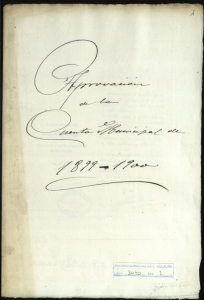 Aprovacion
de la
Cuenta Municipal de
1899-1900